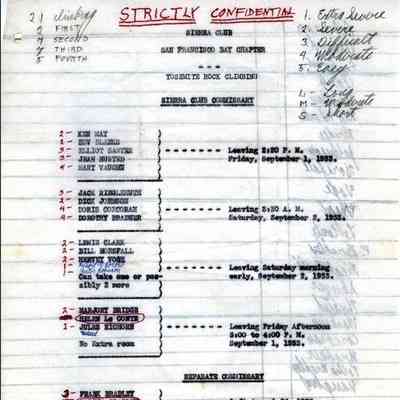 STRICTLY CONFIDENTIAL
2 1 climbing
2 FIRST
4 SECOND
7 THIRD
5 FOURTH
1. Extra Severe
2. Severe
3. Difficult
4. Moderate
5. Easy
L - Long
M - Moderate
S - Short
SIERRA CLUB
SAN FRANCISCO BAY CHAPTER
- - -
YOSEMITE ROCK CLIMBING
SIERRA CLUB COMMISSARY
2 - KEN MAY
1 -
3 - ELLIOT
3 - JEAN
4 - MARY VAUGHN
Leaving 2:20 P. M.
Friday, September 1, 1933.
3 - JACK RIEGELHUTH
2 - DICK JOHNSON
4 - DORIS CORCORAN
4 - DOROTHY
Leaving 2:30 A. M.
Saturday, September 2, 1933.
2 - LEWIS CLARK
2 - BILL HORSFALL
2 - HERVEY VOGE
1 -
Can take one or pos-
sibly 2 more
Leaving Saturday morning
early, September 2, 1933.
2 - MARJORY BRIDGE
HELEN Le CONTE
1 - JULES EICHORN
No Extra room
Leaving Friday Afternoon
5:00 to 6:00 P. M.
September 1, 1933.
SEPARATE COMMISSARY
3 - FRANK BRADLEY